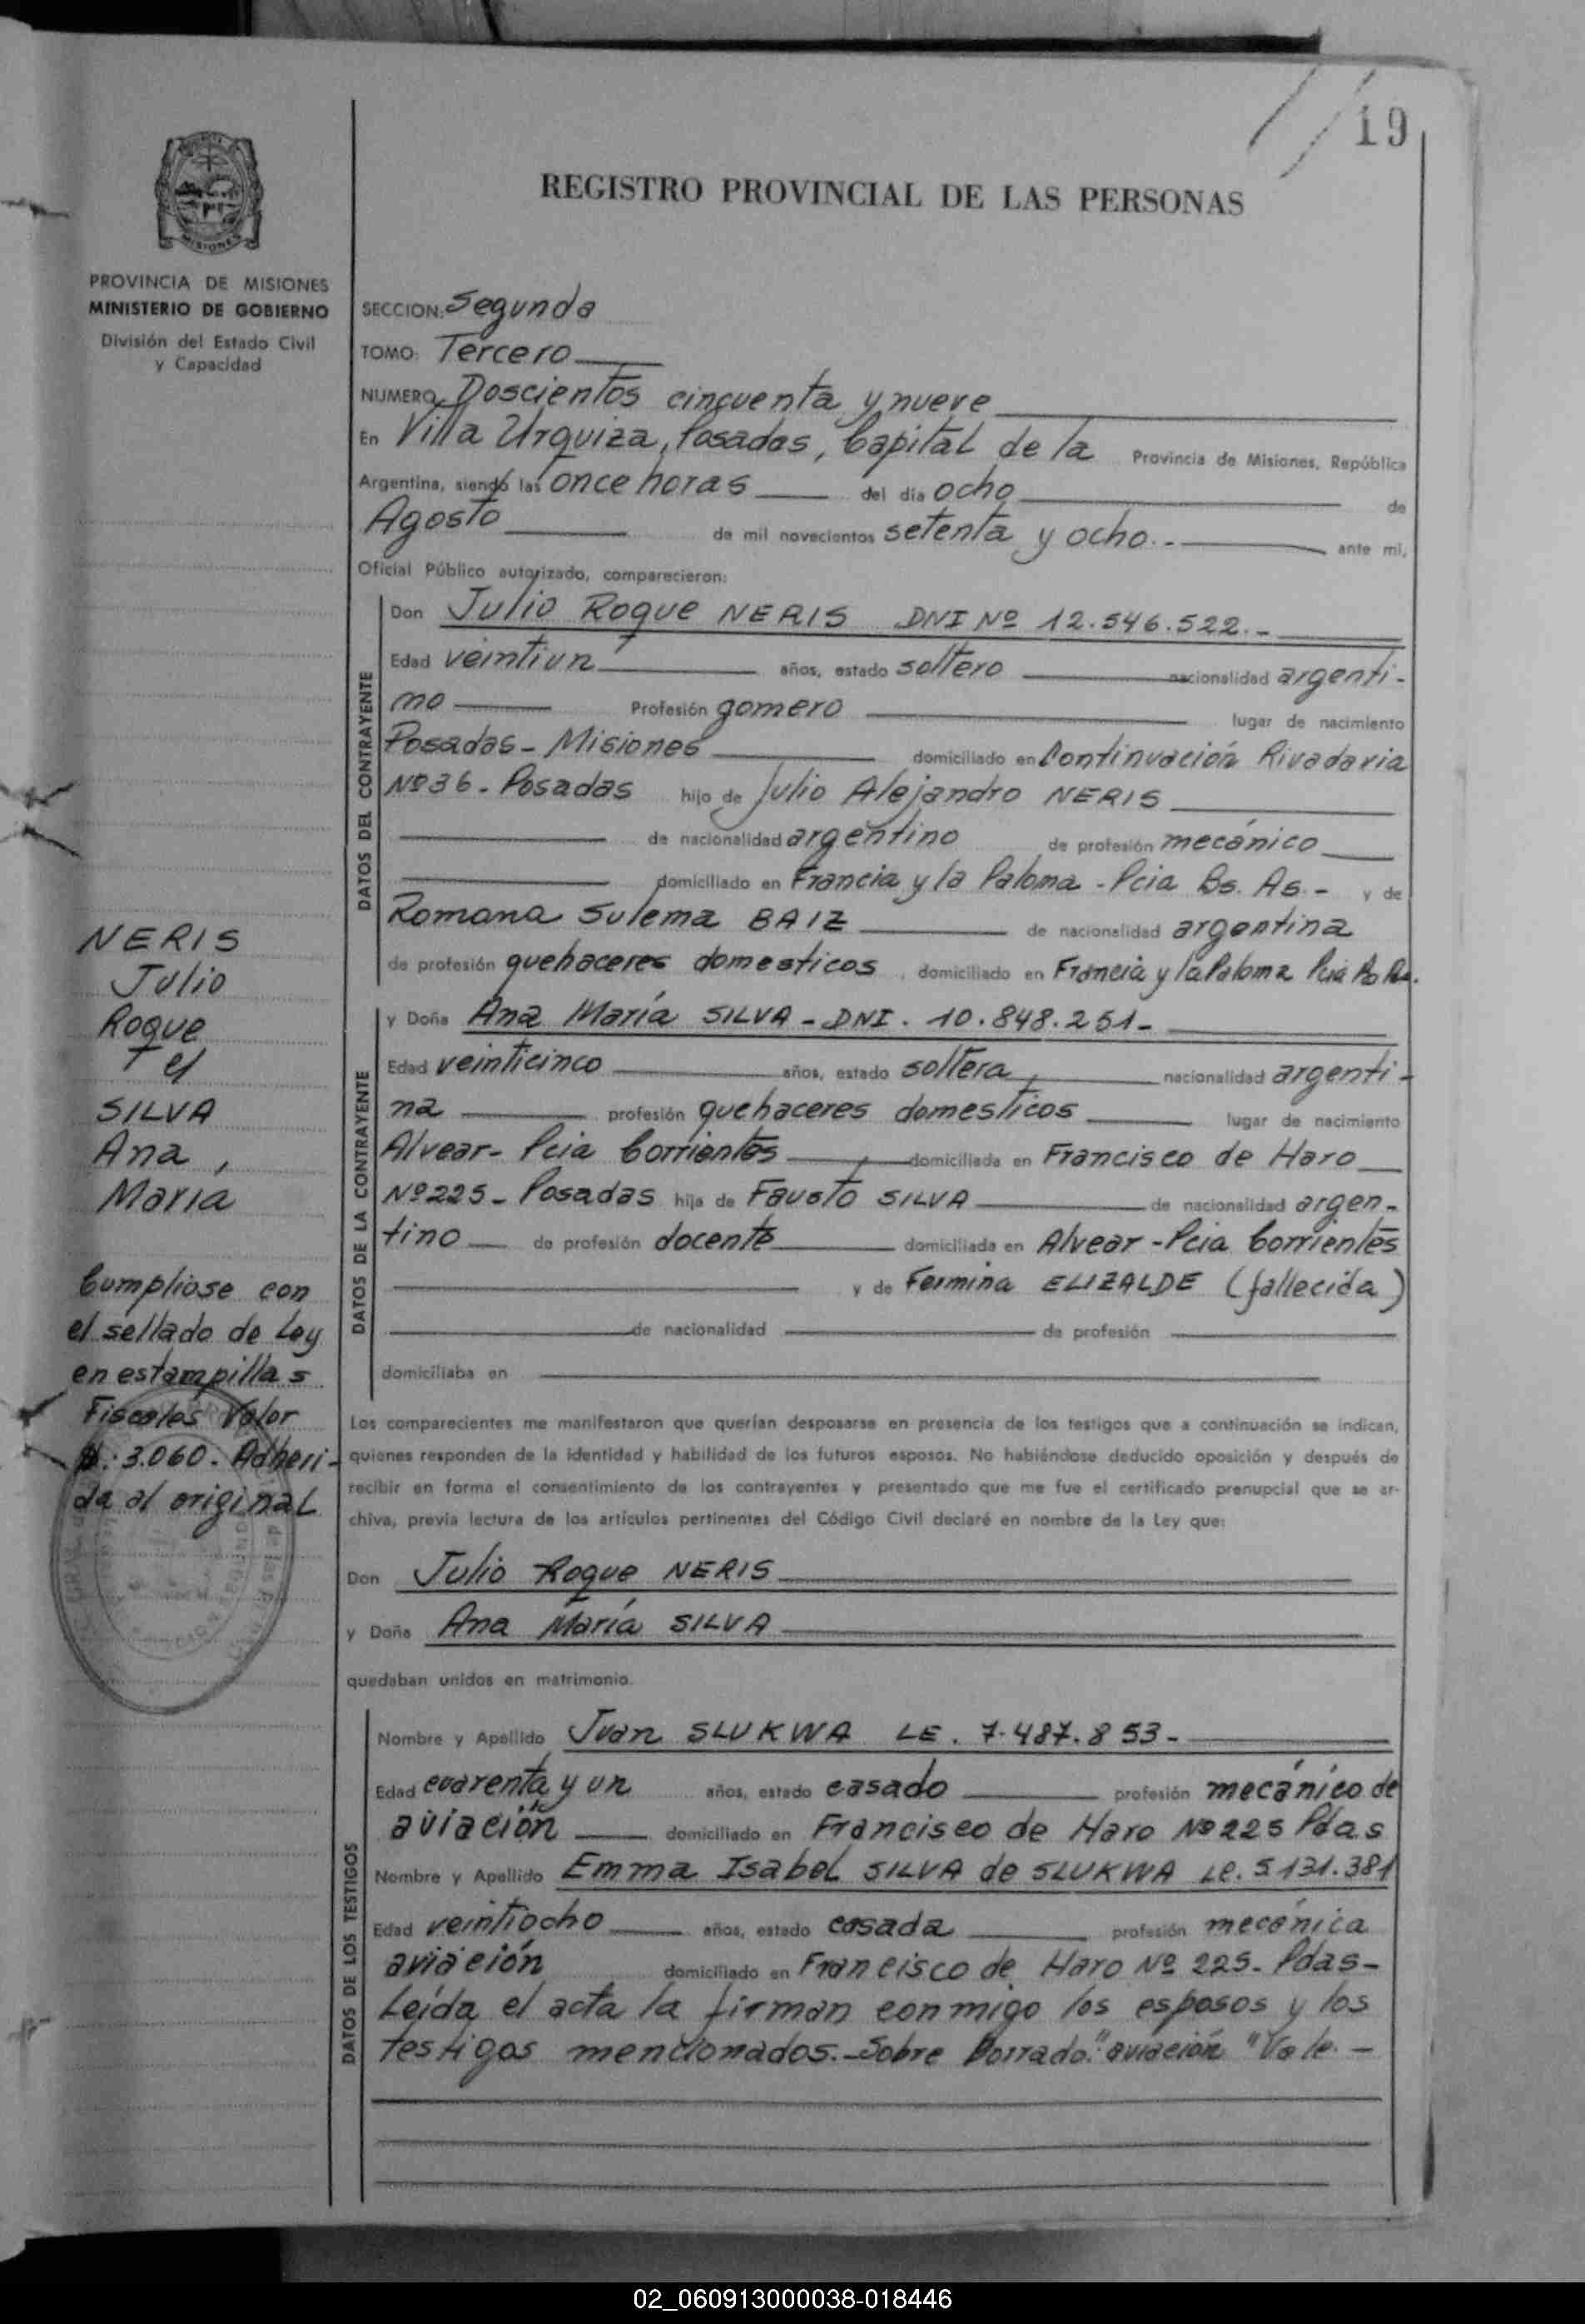 19
REGISTRO PROVINCIAL DE LAS PERSONAS
MISIONES
PROVINCIA DE MISIONES
MINISTERIO DE GOBIERNO
División del Estado Civil
y Capacidad
SECCION: Segunda
TOMO: Tercero
NUMERO Doscientos cincuenta y nueve
En Villa Urquiza, Posadas, Capital de la Provincia de Misiones, República
Argentina, siendo las once horas del día ocho de
Agosto de mil novecientos setenta y ocho.- ante mi,
Oficial Público autorizado, comparecieron:
DATOS DEL CONTRAYENTE
Don Julio Roque NERIS DNI Nº 12.546.522.-
Edad veintiun años, estado soltero nacionalidad argenti-
no Profesión gomero lugar de nacimiento
Posadas - Misiones domiciliado en Continuación Rivadavia
Nº 36 - Posadas hijo de Julio Alejandro NERIS
de nacionalidad argentino de profesión mecánico
domiciliado en Francia y la Paloma - Pcia Bs. As. - y de
Romana Sulema BAIZ de nacionalidad argentina
de profesión quehaceres domesticos domiciliado en Francia y la Paloma Pcia
DATOS DE LA CONTRAYENTE
y Doña Ana María SILVA - DNI. 10.848.251-
Edad veinticinco años, estado soltera, nacionalidad argenti-
na profesión quehaceres domesticos lugar de nacimiento
Alvear - Pcia Corrientes domiciliada en Francisco de Haro
Nº 225 - Posadas hija de Fausto SILVA de nacionalidad argen-
tino de profesión docente domiciliada en Alvear - Pcia Corrientes
y de Fermina ELIZALDE (fallecida)
de nacionalidad de profesión
domiciliaba en
NERIS
Julio
Roque
y
SILVA
Ana
María
Cumpliose con
el sellado de Ley
en estampillas
Fiscales Valor
$: 3.060. Adheri-
da al original
Los comparecientes me manifestaron que querían desposarse en presencia de los testigos que a continuación se indican,
quienes responden de la identidad y habilidad de los futuros esposos. No habiéndose deducido oposición y después de
recibir en forma el consentimiento de los contrayentes y presentado que me fue el certificado prenupcial que se ar-
chiva, previa lectura de los artículos pertinentes del Código Civil declaré en nombre de la Ley que:
Don Julio Roque NERIS
y Doña Ana María SILVA
quedaban unidos en matrimonio.
DATOS DE LOS TESTIGOS
Nombre y Apellido Juan SLUKWA LE. 7.487.853-
Edad cuarenta y un años, estado casado profesión mecánico de
aviación domiciliado en Francisco de Haro Nº 225 Pdas
Nombre y Apellido Emma Isabel SILVA de SLUKWA LE. 5.131.381
Edad veintiocho años, estado casada profesión mecánica
aviación domiciliado en Francisco de Haro Nº 225 - Pdas-
Leída el acta la firman conmigo los esposos y los
testigos mencionados.- Sobre borrado: "aviación" Vale.-
02_060913000038-018446